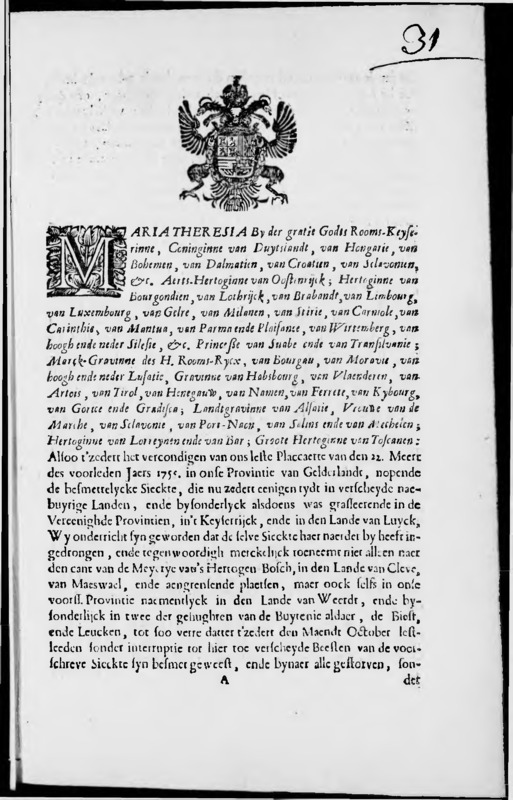 31
MARIA THERESIA By der gratie Godts Rooms-Keyse-
rinne, Coninginne van Duytslandt, van Hongarie, van
Bohemen, van Dalmatien, van Croatien, van Sclavonien,
&c. Aerts-Hertoginne van Oostenrijck; Hertoginne van
Bourgondien, van Lothrijck, van Brabandt, van Limbourg,
van Luxembourg, van Gelre, van Milanen, van Stirie, van Carniole, van
Carinthie, van Mantua, van Parma ende Plaisance, van Wirtemberg, van
hoogh ende neder Silesie, &c. Princesse van Suabe ende van Transilvanie;
Marck-Gravinne des H. Rooms-Rycx, van Bourgau, van Moravie, van
hoogh ende neder Lusatie, Gravinne van Habsbourg, van Vlaenderen, van
Artois, van Tirol, van Henegauw, van Namen, van Ferrette, van Kybourg,
van Gorice ende Gradisca; Landtgravinne van Alsatie, Vrouwe van de
Marche, van Sclavonie, van Port-Naon, van Salins ende van Mechelen;
Hertoginne van Lorreynen ende van Bar; Groote Hertoginne van Toscanen:
Alsoo t'zedert het vercondigen van ons leste Placcaerte van den 22. Meert
des voorleden Jaers 175 . in onse Provintie van Gelderlandt, nopende
de besmettelycke Sieckte, die nu zedert eenigen tydt in verscheyde nae-
buyrige Landen, ende bysonderlyck alsdoens was grasseerende in de
Vereenighde Provintien, in't Keyserrijck, ende in den Lande van Luyck,
Wy onderricht syn geworden dat de selve Sieckte haer naerder by heeft in-
gedrongen, ende tegenwoordigh merckelijck toeneemt niet alleen naer
den cant van de Meyerye van's Hertogen-Bosch, in den Lande van Cleve,
van Maeswael, ende aengrensende plaetsen, maer oock selfs in onse
voorss. Provintie naementlyck in den Lande van Weerdt, ende by-
sonderlijck in twee der gehughten van de Buytenie aldaer, de Biest,
ende Leucken, tot soo verre datter t'zedert den Maendt October lest-
leeden sonder interruptie tot hier toe verscheyde Beesten van de voor-
schreve Sieckte syn besmet geweest, ende bynaer alle gestorven, son-
A
der